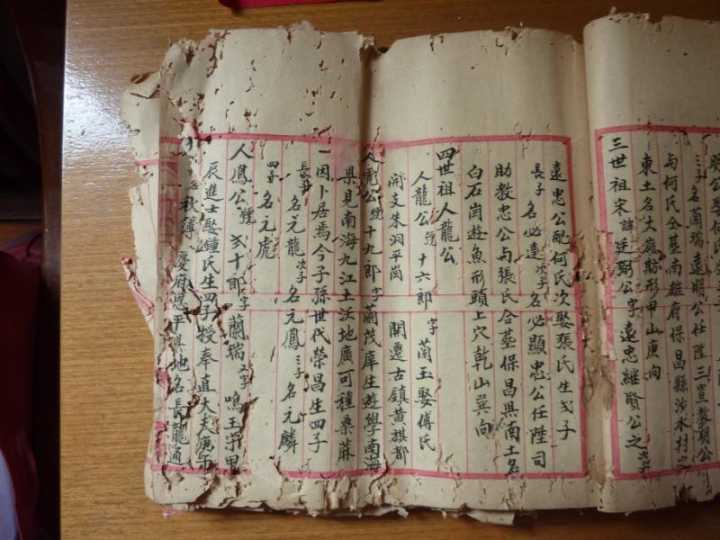 賢公
三子名蘭瑞遠賜公任陞三宣教賜公
与何氏仝墓南雄府保昌縣沙水村之
東土名大嶺 形甲山庚向
三世祖宋諱廷弼公字遠忠繼賢公之次子
遠忠公配何氏次娶張氏生弍子
長子名必達次子名必顯忠公任陞司
助教忠公与張氏仝墓保昌縣南土名
白石崗遊魚形頭上穴乾山巽向
四世祖人龍公
人龍公號十六郎字蘭玉娶傅氏
開支朱洞平崗 開遷古鎮黄旗都
人虎公號十九郎字蘭茂庠生遊學南海
県見南海九江土沃地廣可種桑麻
一因卜居焉今子孫世代榮昌生四子
長子名元龍次子名元鳳三子名元麟
四子名元虎
人鳳公號弍十郎字蘭瑞又字鳴玉宋甲
辰進士娶鍾氏生四子授奉直大夫
慶府恩平縣地名長龍通